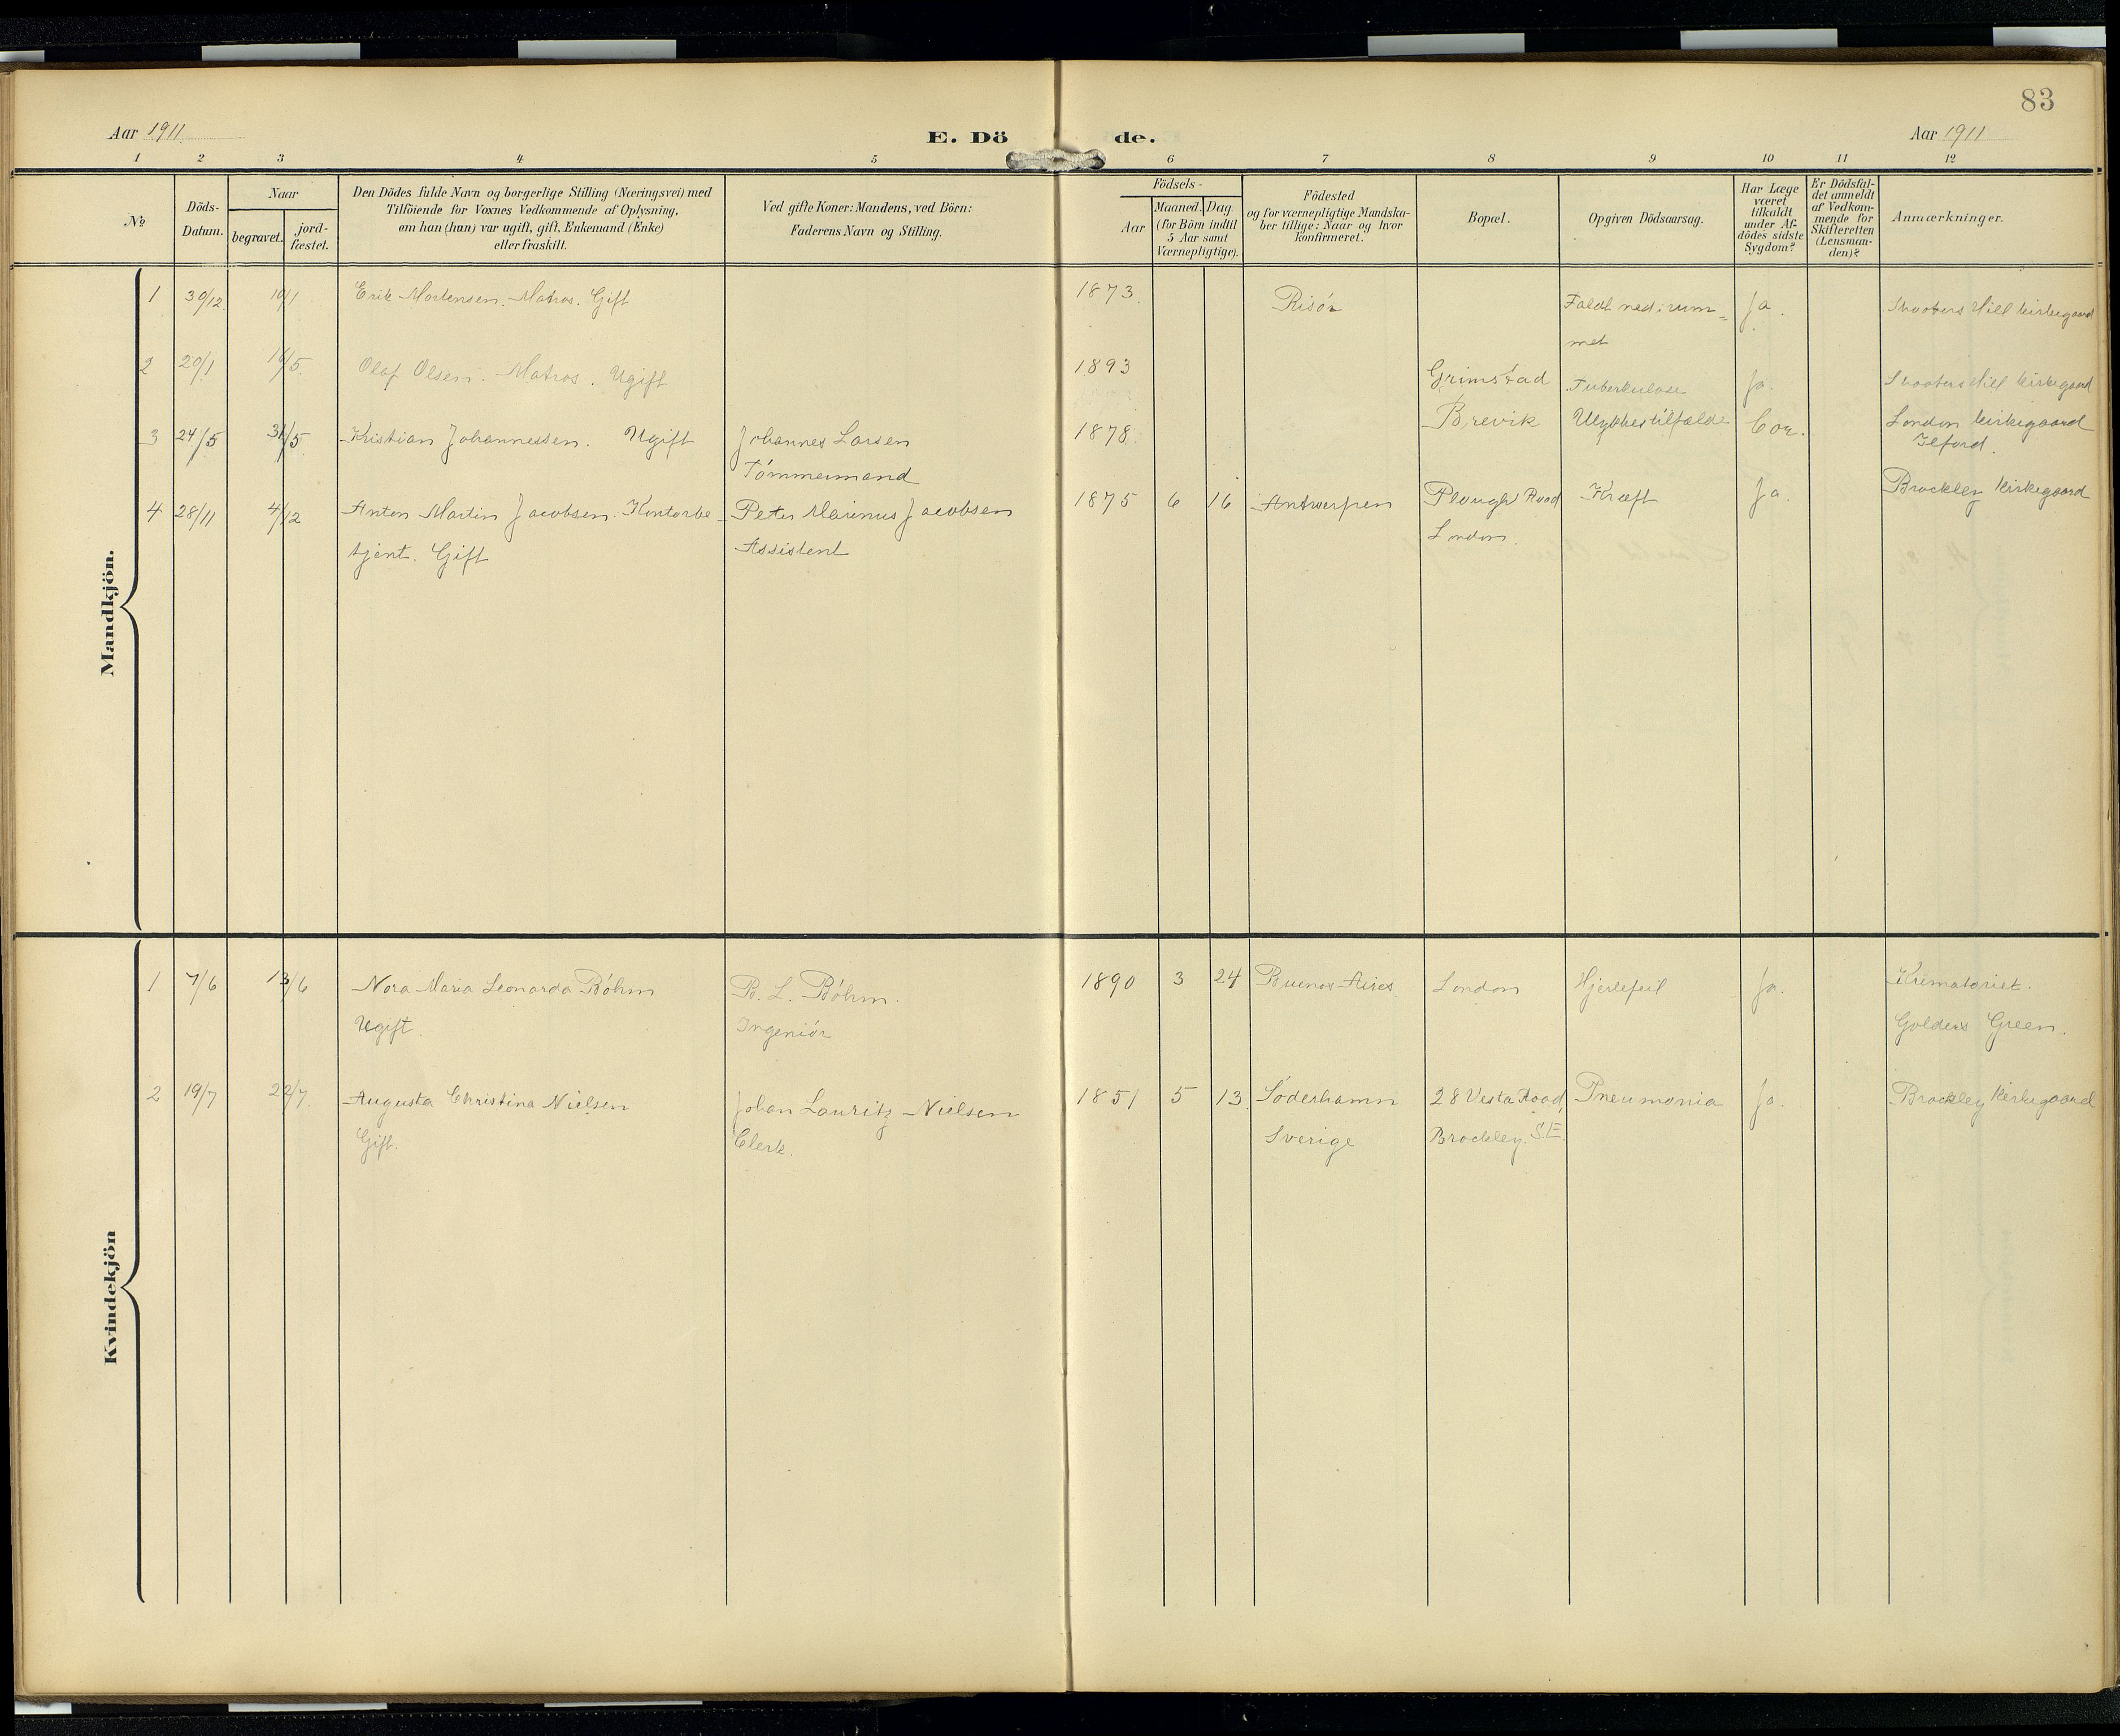 83
Aar 1911
E. Döde.
Aar 1911
1 2 3 4 5 6 7 8 9 10 11 12
No
Döds-
Datum.
Naar
begravet.
jord-
fæstet.
Den Dödes fulde Navn og borgerlige Stilling (Næringsvei) med
Tilföiende for Voxnes Vedkommende af Oplysning,
om han (hun) var ugift, gift, Enkemand (Enke)
eller fraskilt.
Ved gifte Koner: Mandens, ved Börn:
Faderens Navn og Stilling.
Födsels-
Aar
Maaned. Dag.
(for Börn indtil
5 Aar samt
Værnepligtige).
Födested
og for værnepligtige Mandska-
ber tillige: Naar og hvor
konfirmeret.
Bopæl.
Opgiven Dödsaarsag.
Har Læge
været
tilkaldt
under Af-
dödes sidste
Sygdom?
Er Dödsfal-
det anmeldt
af Vedkom-
mende for
Skifteretten
(Lensman-
den)?
Anmærkninger.
Mandkjön.
1 30/12 10/1 Erik Mortensen. Matros. Gift 1873. Risør Faldt ned i rum= Ja. Shooters Hill kirkegaard
met
2 20/1 16/5 Olaf Olsen. Matros. Ugift 1893 Grimstad Tuberkulose Ja. Shooters Hill kirkegaard
3 24/5 31/5 Kristian Johannessen. Ugift Johannes Larsen 1878. Brevik Ulykkestilfælde Cor. London kirkegaard
Tømmermand Ilford.
4 28/11 4/12 Anton Martin Jacobsen. Kontorbe- Peter Marinus Jacobsen 1875 6 16 Antwerpen Plough Road Kræft Ja. Brockley kirkegaard
tjent. Gift Assistent London.
Kvindekjön
1 7/6 13/6 Nora Maria Leonarda Bøhm B. L. Bøhm. 1890 3 24 Buenos Aires London Hjertefeil Ja. Krematoriet.
Ugift. Ingeniør Golders Green.
2 19/7 22/7 Augusta Christina Nielsen Johan Lauritz Nielsen. 1851 5 13. Söderhamn 28 Vesta Road, Pneumonia Ja. Brockley kirkegaard
Gift. Clerk. Sverige Brockley. S.E.